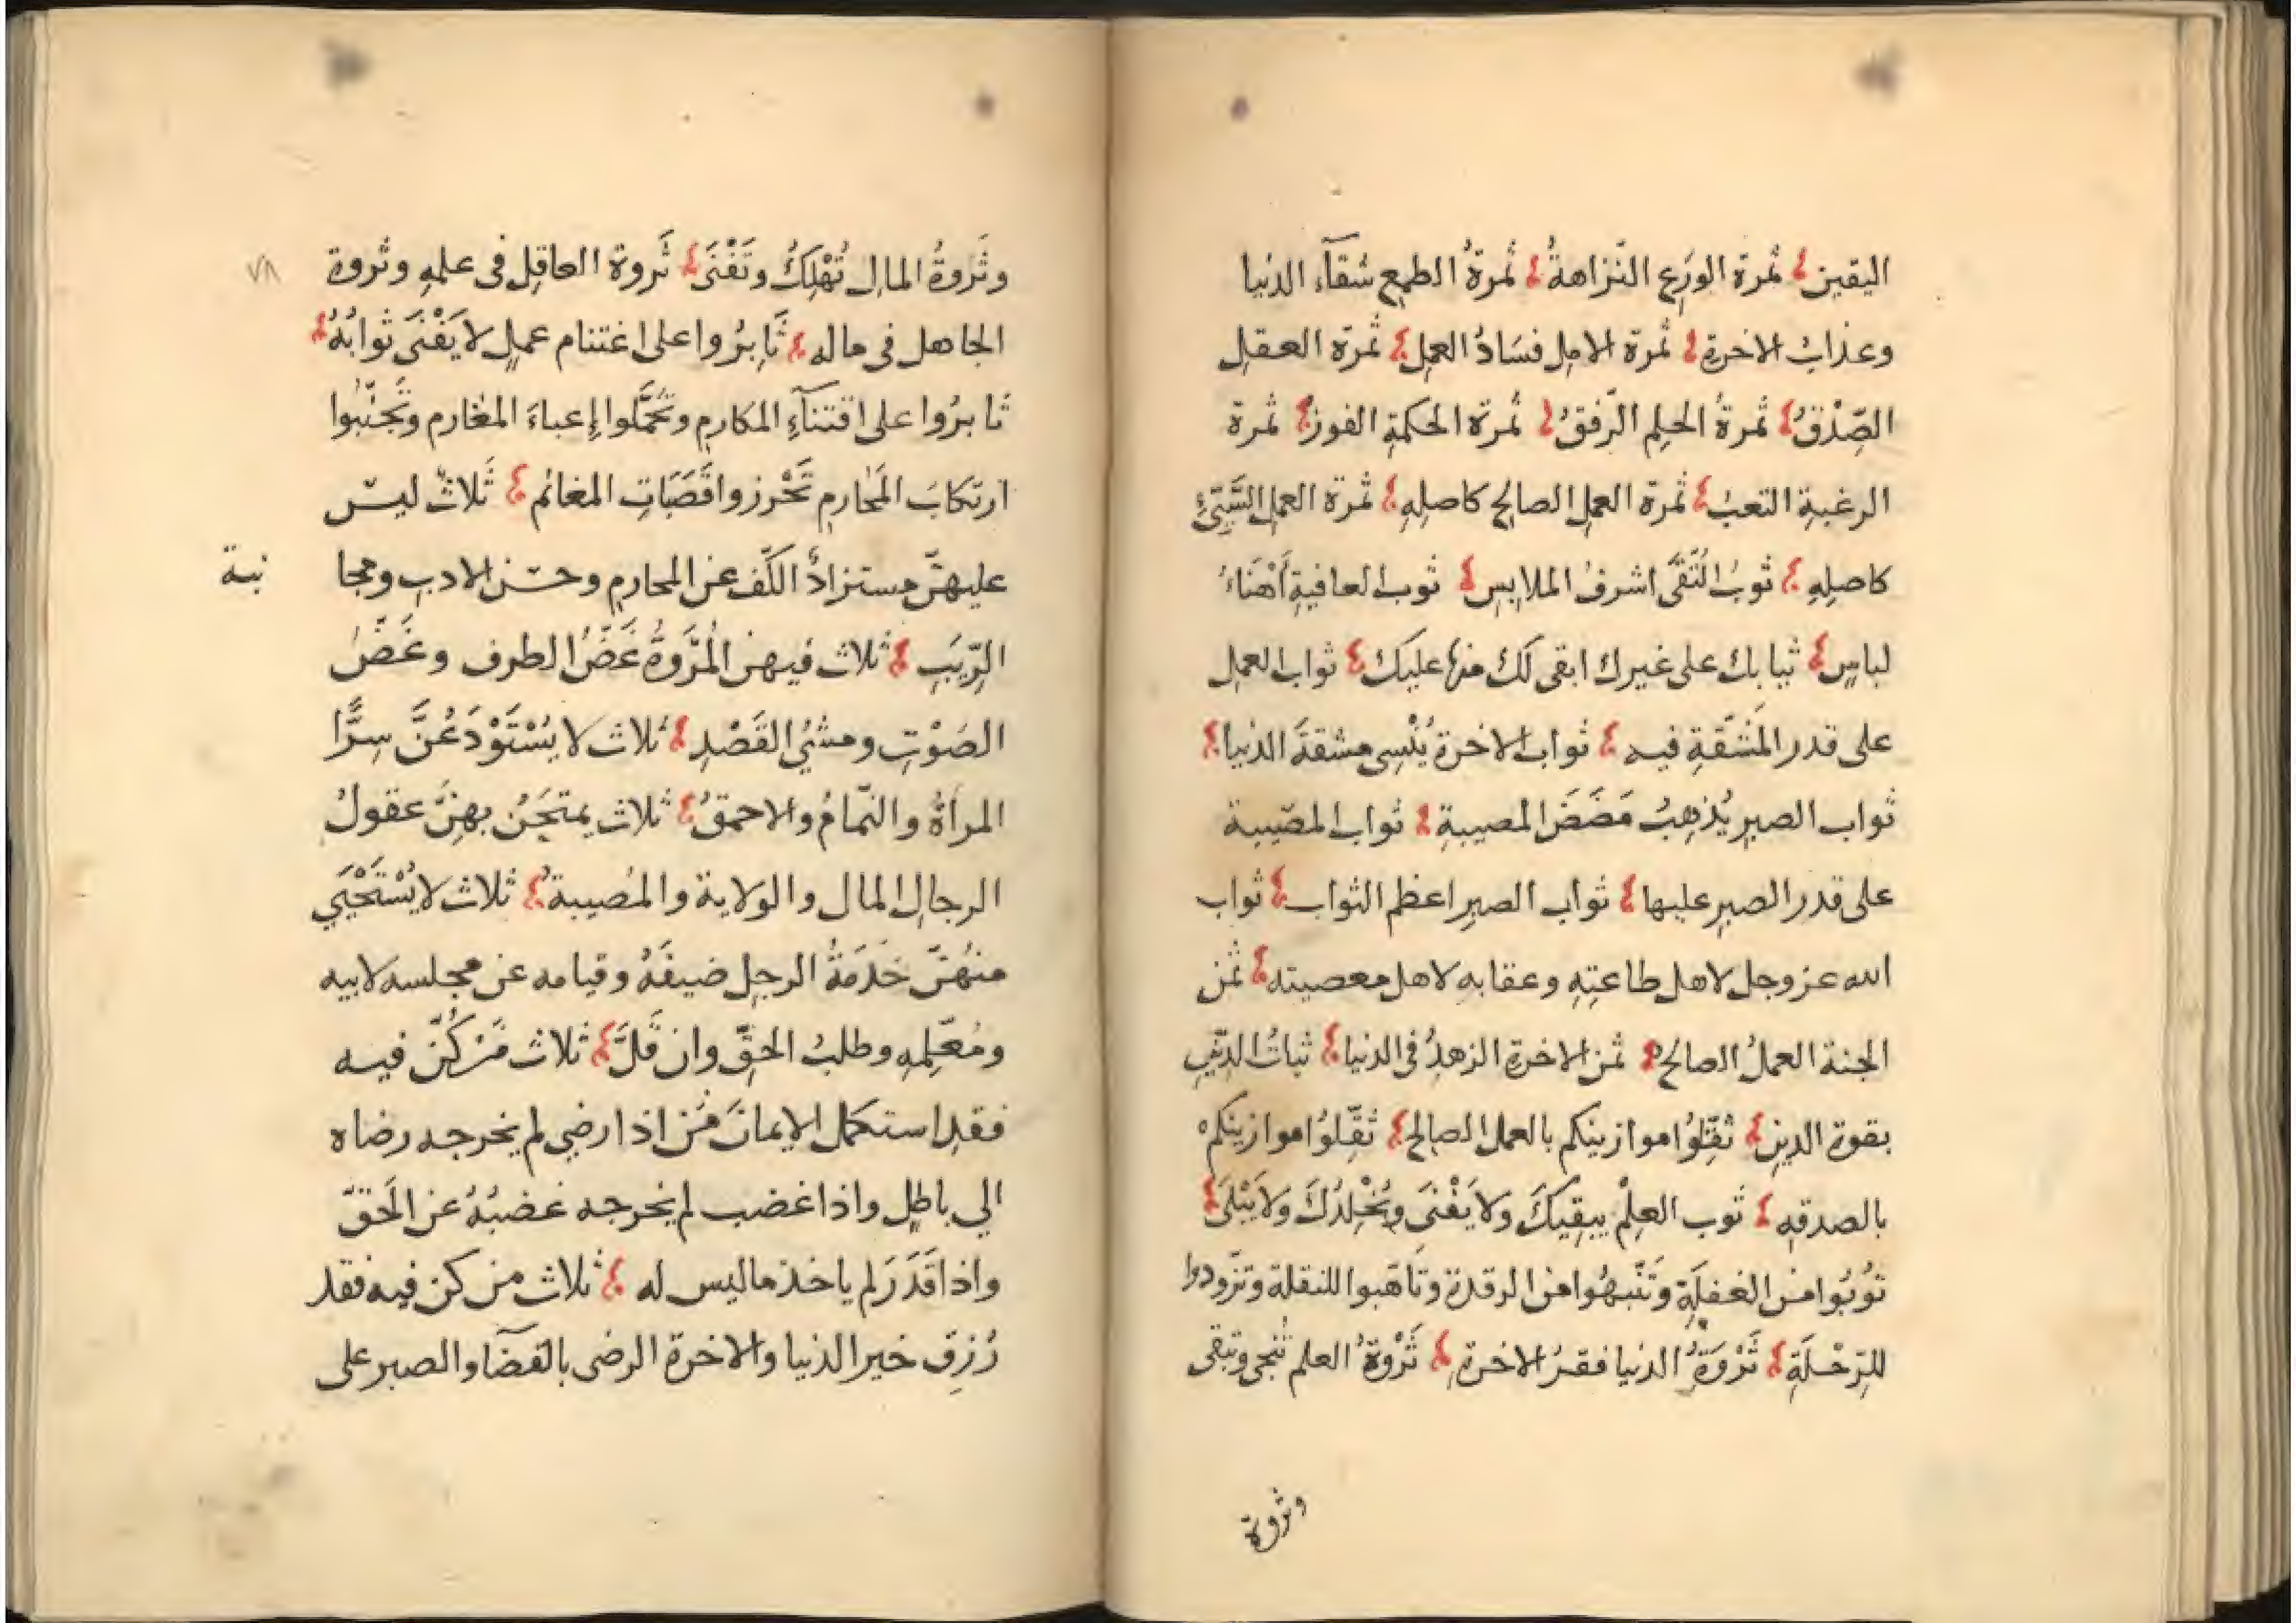 اليقين ثمرة الورَعِ النّزاهةُ ثمرةُ الطمعِ شقآء الدنيا
وعذابُ الاخرةِ ثمرة الاملِ فسَادُ العملِ ثمرة العقلِ
الصِّدْقُ ثمرةُ الحلمِ الرّفقُ ثمرة الحكمةِ الفوزُ ثمرة
الرغبةِ التعبُ ثمرة العملِ الصالحِ كاصلِهِ ثمرة العملِ السَّيّئِ
كاصلِهِ ثوبُ التُّقَى اشرفُ الملابسِ ثوب العافيةِ أَهْنَاءُ
لباسٍ ثيابك على غيرك ابقى لكَ منها عليكَ ثواب العملِ
على قدر المَشَقّةِ فيه ثواب الاخرة يُنْسِى مشقةَ الدنيا
ثواب الصبرِ يُذهِبُ مَضَضَ المصيبةِ ثواب المصيبة
على قدر الصبرِ عليها ثواب الصبرِ اعظم الثواب ثواب
الله عز وجل لاهل طاعتِهِ وعقابه لاهل معصيته ثمن
الجنة العملُ الصالح ثمن الاخرةِ الزهدُ فى الدنيا ثباتُ الدّينِ
بقوة الدينِ ثقّلُوا موازينكم بالعمل الصالح ثقّلوُا موازينكم
بالصدقهِ ثَوب العِلْم يبقِيكَ ولا يَفْنَى ويُخْلِدُكَ ولا يَبْلَى
توُبُوا من الغفلَةِ وتَنَبهُوا من الرقدة وتَاهّبوا للنقلة وتزّودوا
للرّحْلَةِ ثَرْوَةُ الدنيا فقرُ الاخرةِ ثَرْوةُ العلم تُنجى وتبقى
وثروة
وثَروةُ المالِ تُهْلِكُ وتَفْنَى ثَروة العاقِل فى علمِهِ وثروة
٧٨
الجاهل فى ماله ثَابِرُوا على اغتنام عملٍ لا يَفْنَى ثوابُهُ
ثَابرُوا على اقتنآءِ المكارمِ وتحمَّلوا إعباءَ المغارم وتَجنّبُوا
ارتكابَ المَحارمِ تَحْرزوا قَصَبَاتِ المغانم ثَلاثٌ ليسَ
عليهنّ مستزادٌ الكَّف عن المحارمِ وحسْن الادبِ ومجا
نبة
الرِّيَبِ ثلاث فيهن المُرَّوةُ غَضُّ الطرف وغَضُّ
الصَوْتِ ومشْيُ القَصْدِ ثلاث لا يُسْتَوْدَعُنَّ سِرًّا
المراةُ والنّمامُ والاحمقُ ثلاث يمتحَنُ بهِنَّ عقولُ
الرجالِ المال والولاية والمُصيبةُ ثلاث لا يُسْتَحْيَي
منهُنّ خَدَمَةُ الرجلِ ضيفَهُ وقيامه عن مجلسه لابيه
ومُعَلِّمِهِ وطلبُ الحقِّ وان قَلَّ ثلاث مَن كُنّ فيه
فقدِ استكمل الايمانَ مَن اذا رضي لم يخرجه رضاه
الي باطلٍ واذا غضب لم يخرجه غضبُهُ عن الحَقّ
واذا قَدَرَ لم ياخذ ما ليس له ثلاث من كن فيه فقد
رُزِقَ خير الدنيا والاخرة الرضى بالقضآ والصبر على